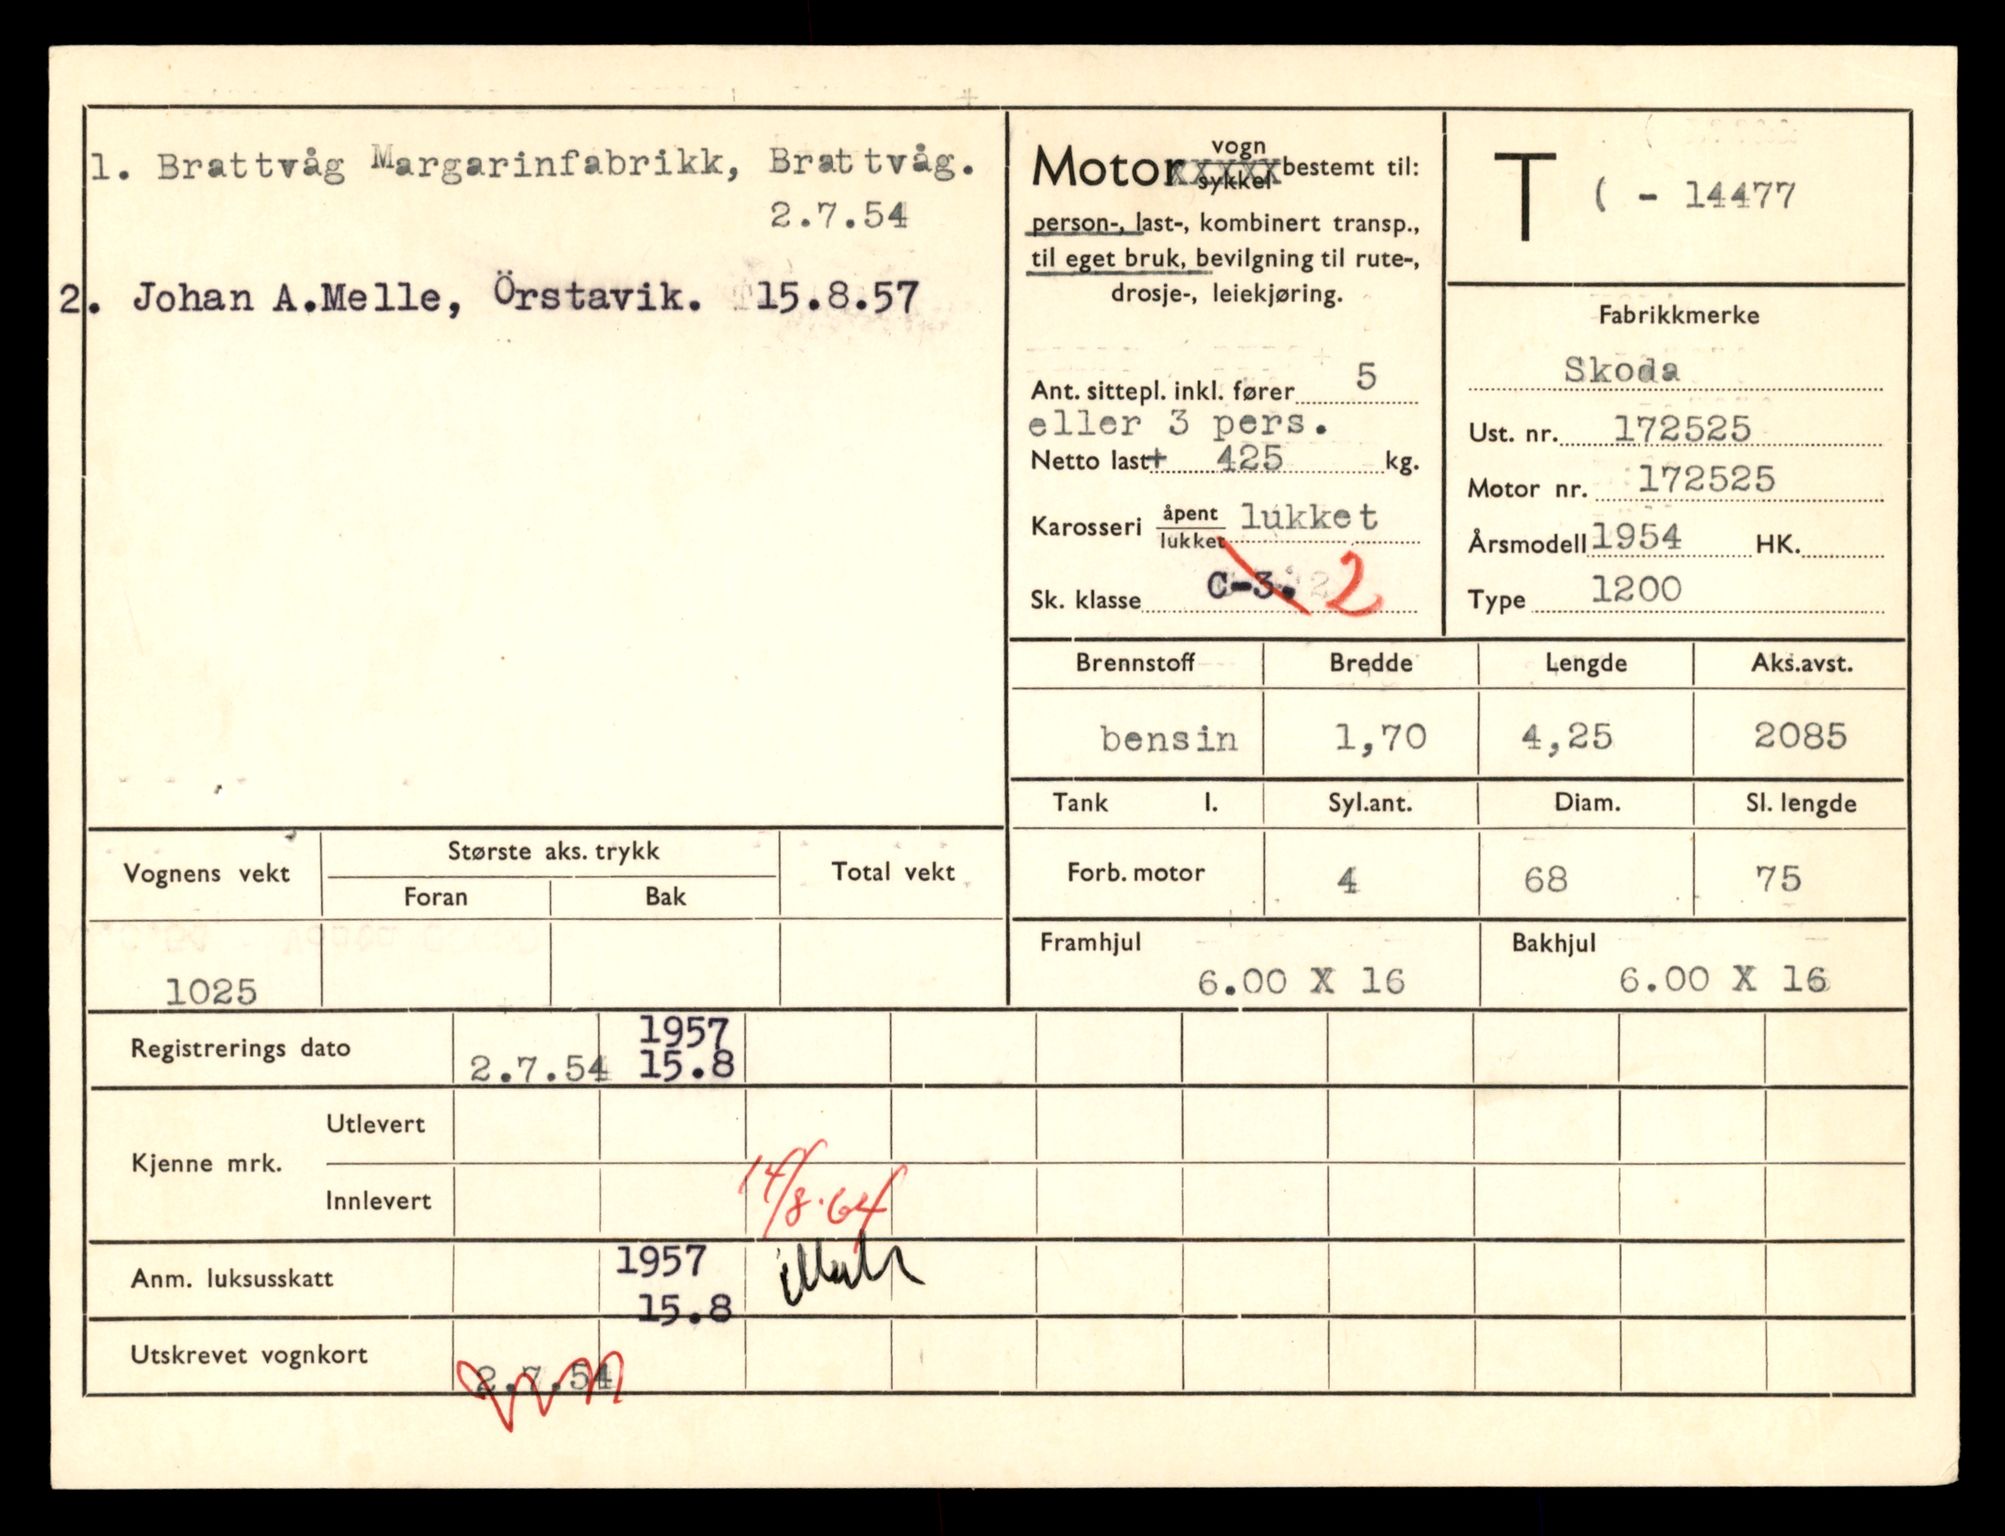 1. Brattvåg Margarinfabrikk, Brattvåg.
2.7.54
2. Johan A.Melle, Örstavik. 15.8.57
Motor vogn xxxxx sykkel bestemt til:
person-, last-, kombinert transp.,
til eget bruk, bevilgning til rute-,
drosje-, leiekjøring.
Ant. sittepl. inkl. fører 5
eller 3 pers.
Netto last + 425 kg.
Karosseri åpent lukket lukket
Sk. klasse C-3. 2
T ( - 14477
Fabrikkmerke
Skoda
Ust. nr. 172525
Motor nr. 172525
Årsmodell 1954 HK.
Type 1200
Brennstoff Bredde Lengde Aks.avst.
bensin 1,70 4,25 2085
Tank l. Syl.ant. Diam. Sl. lengde
Forb. motor 4 68 75
Framhjul Bakhjul
6.00 X 16 6.00 X 16
Vognens vekt Største aks. trykk Total vekt
Foran Bak
1025
Registrerings dato 2.7.54 1957 15.8
Kjenne mrk. Utlevert
Innlevert 14/8.64
Anm. luksusskatt 1957
15.8
Utskrevet vognkort 2.7.54